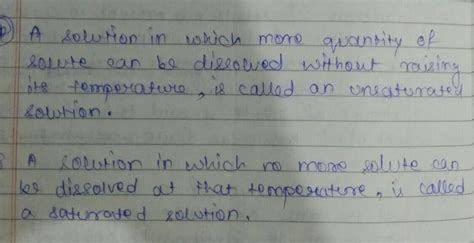 A solution in which more quantity of
solute can be dissolved without raising
its temperature, is called an unsaturated
solution.
A solution in which no more solute can
be dissolved at that temperature, is called
a saturated solution.